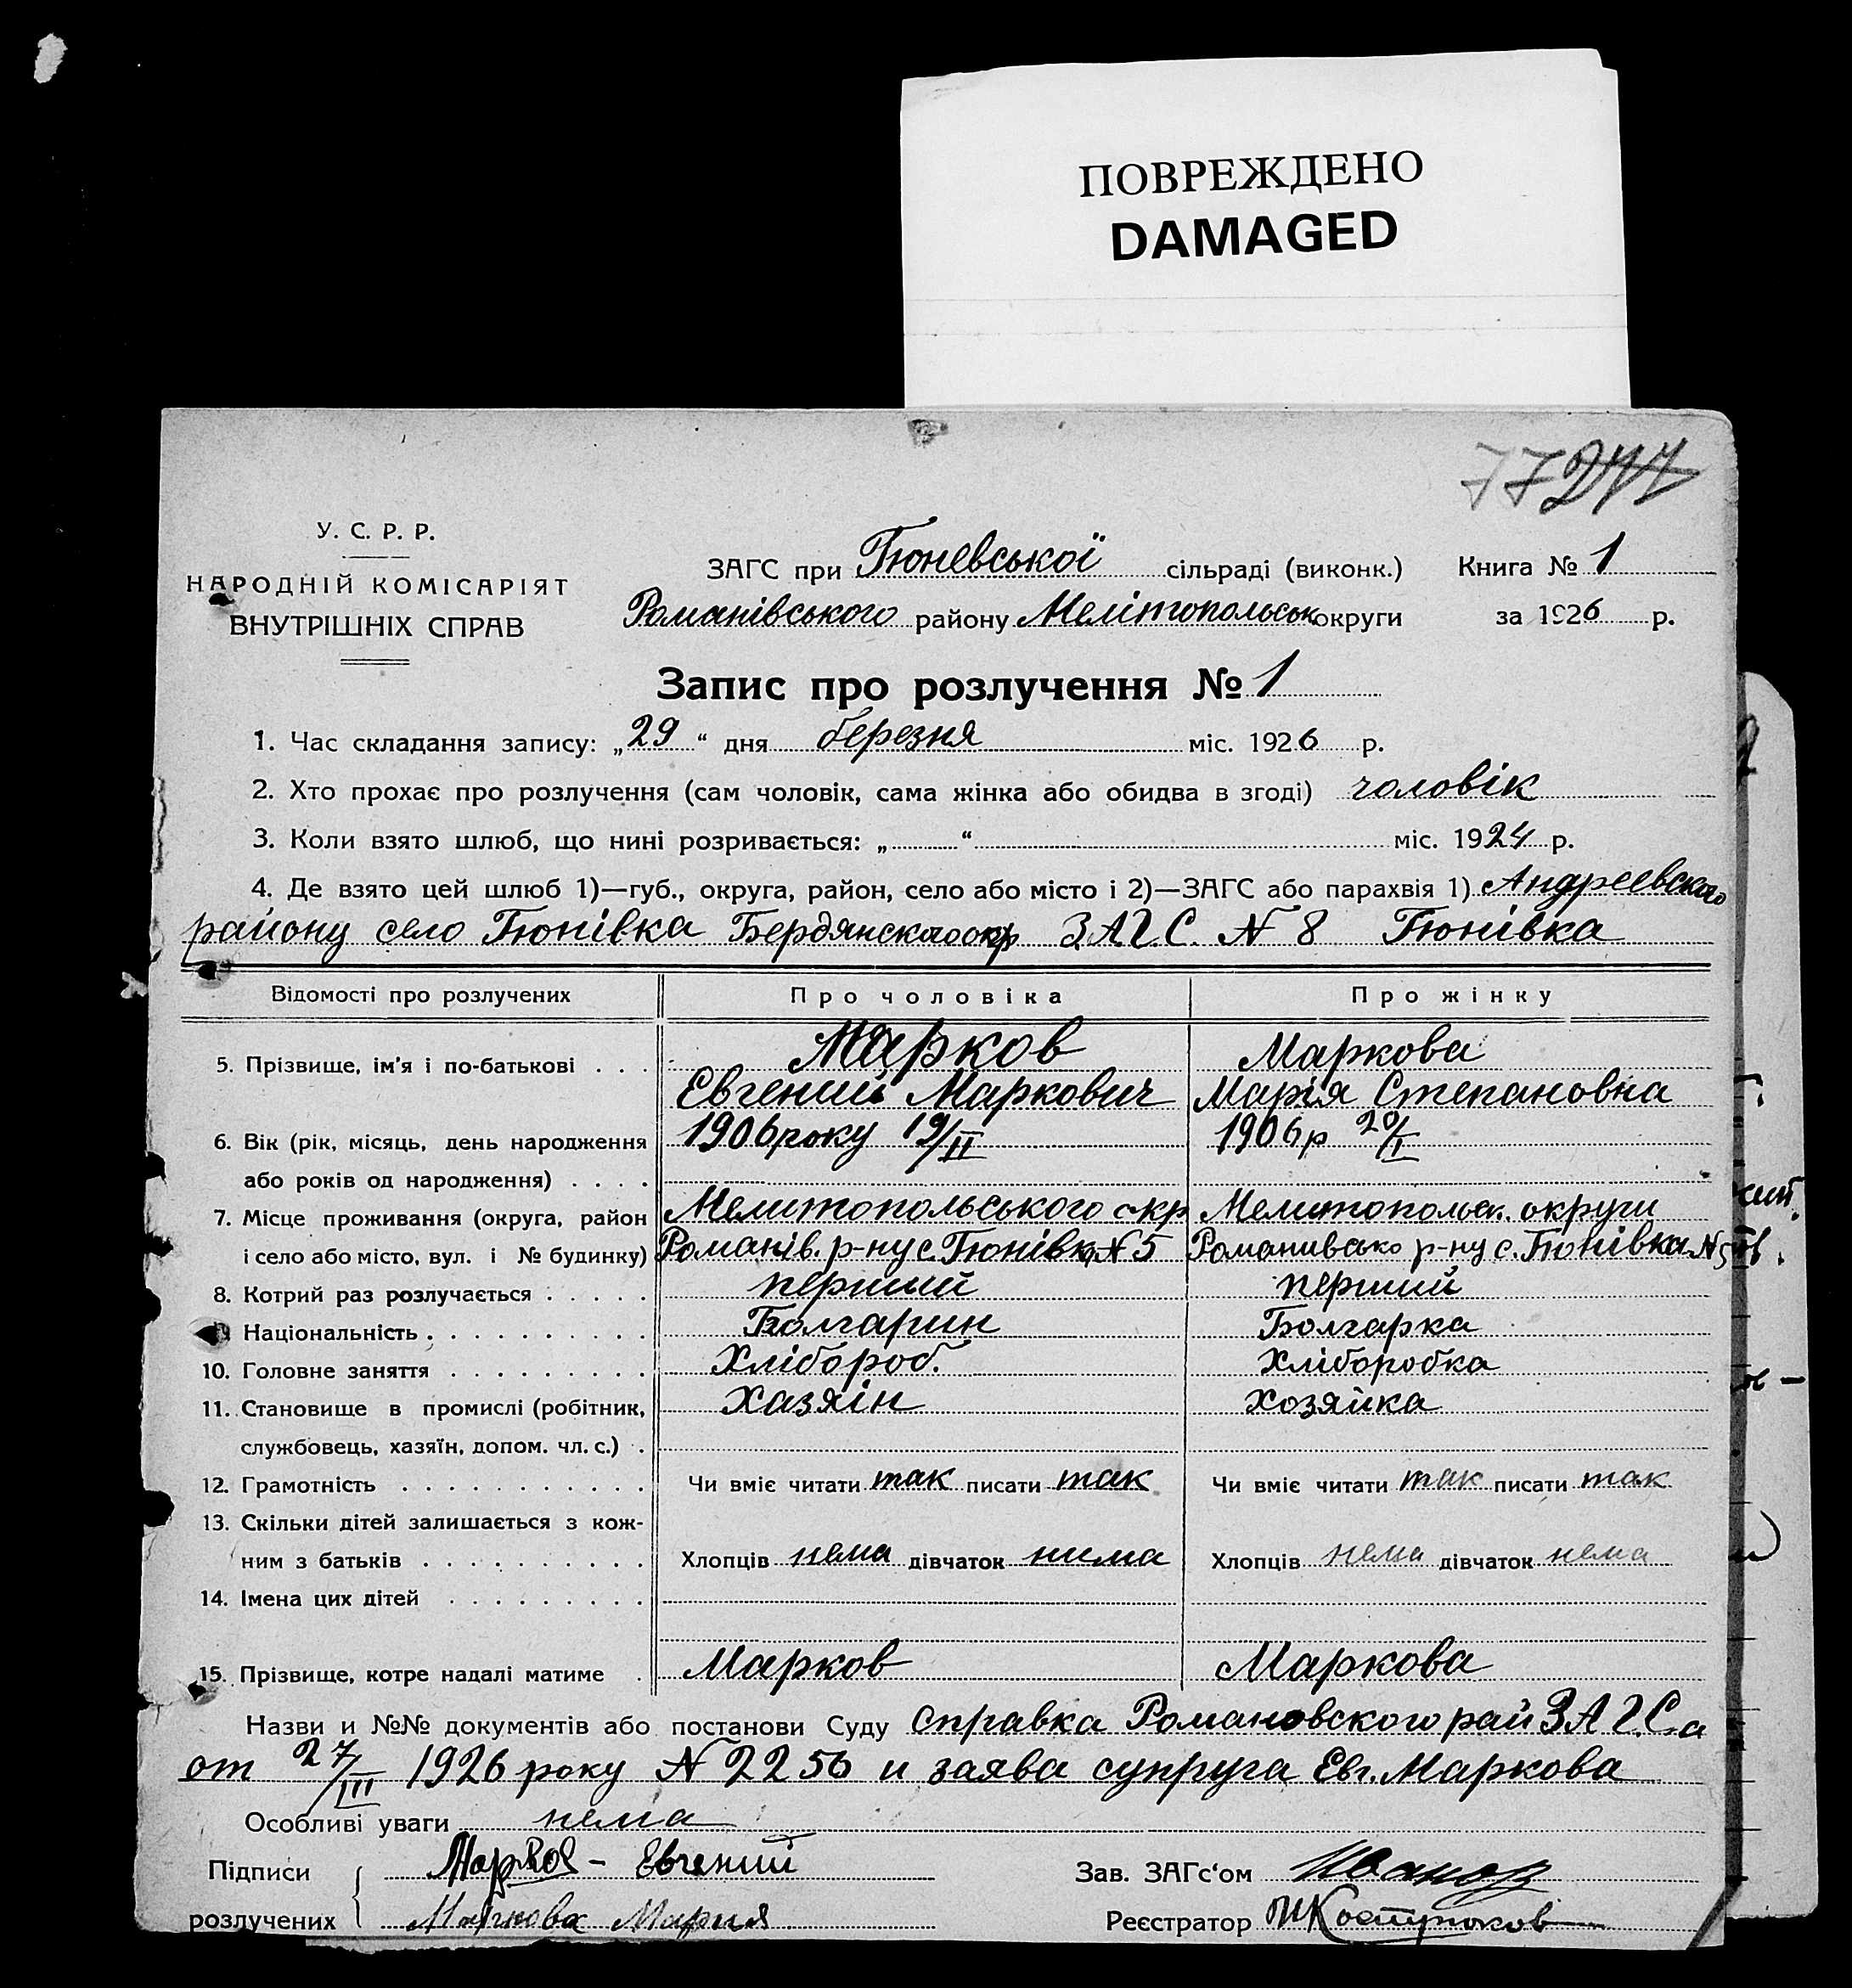 ПОВРЕЖДЕНО
DAMAGED
77 277
У. С. Р. Р.
НАРОДНІЙ КОМІСАРІЯТ
ВНУТРІШНІХ СПРАВ
ЗАГС при Гюневської сільраді (виконк.) Книга № 1
Романівського району Мелітопольськ округи за 1926 р.
Запис про розлучення № 1
1. Час складання запису: „29“ дня березня міс. 1926 р.
2. Хто прохає про розлучення (сам чоловік, сама жінка або обидва в згоді) чоловік
3. Коли взято шлюб, що нині розривається: „ “ міс. 1924 р.
4. Де взято цей шлюб 1)—губ., округа, район, село або місто і 2)—ЗАГС або парахвія 1) Андреевского
району село Гюнівка Бердянскаоокр З.А.Г.С. N 8 Гюнівка
Відомості про розлучених Про чоловіка Про жінку
5. Прізвище, ім'я і по-батькові . . . Марков Маркова
Евгений Маркович Марія Степановна
6. Вік (рік, місяць, день народження 1906 року 19/II 1906 р 20/I
або років од народження) . . . .
7. Місце проживання (округа, район Мелитопольського окр Мелитопольск. округи
і село або місто, вул. і № будинку) Романів. р-ну с. Гюнівка N 5 Романивсько р-ну с. Гюнівка N 5
8. Котрий раз розлучається . . . . . перший перший
Національність . . . . . . . . . . Болгарин Болгарка
10. Головне заняття . . . . . . . . . Хлібороб. Хліборобка
11. Становище в промислі (робітник, Хазяін Хозяйка
службовець, хазяїн, допом. чл. с.) .
12. Грамотність . . . . . . . . . . . Чи вміє читати так писати так Чи вміє читати так писати так
13. Скільки дітей залишається з кож-
ним з батьків . . . . . . . . . . Хлопців нема дівчаток нима Хлопців нема дівчаток нема
14. Імена цих дітей . . . . . . . . .
15. Прізвище, котре надалі матиме . Марков Маркова
Назви и №№ документів або постанови Суду Справка Романовского рай ЗАГСа
от 27/III 1926 року N 2256 и заява супруга Евг. Маркова
Особливі уваги нема
Підписи Марков - Евгений Зав. ЗАГс‘ом Иванов
розлучених Маркова Мария Реєстратор